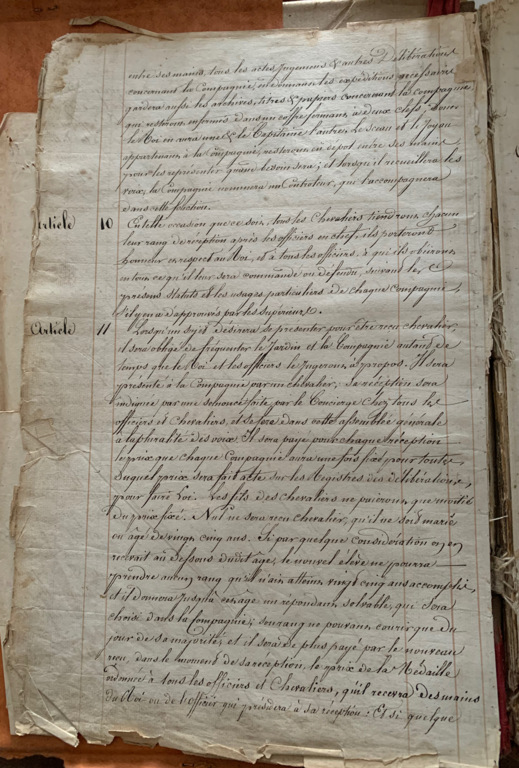 entre ses mains, tous les actes Jugemens & autres Déliberations
concernant la Compagnie, en donnera les expéditions necessaires
gardera aussi les archives, titres & papiers concernant la compagnie
qui resteront enfermés dans un coffre fermant à deux clefs Donc
le Roi en aura une & le Capitaine l'autre, le sceau et le Joyau
appartenant à la Compagnie, resteront en dépot entre ses mains
pour les representer quand besoin sera; et lorsqu'il recueillera les
voix, la Compagnie nommera un Controleur, qui l'accompagnera
dans cette fonction.
Article 10 En telle occasion que ce soit, tous les Chevaliers tiendront chacun
leur rang de reception après les officiers en chef, ils porteront
honneur et respect au Roi, et à tous les officiers, à qui ils obéiront
en tout ce qui leur sera commandé ou defendu, suivant les
presens Statuts et les usages particuliers de chaque Compagnie,
s'il y en a d'approuvés par les Superieurs.
Article 11 Lorsqu'un sujet desirera se presenter pour être reçu chevalier,
il sera obligé de fréquenter le Jardin et la Compagnie autant de
temps que le Roi et les officiers le Jugeront à propos. Il sera
presenté à la Compagnie par un chevalier, sa réception sera
indiquée par une semonce faite par le Concierge chez tous les
officiers et Chevaliers, et se fera dans cette assemblée générale
à la pluralité des voix Il sera payé pour chaque réception
le prix que chaque Compagnie aura une fois fixé pour toutes,
duquel prix sera fait acte sur les Registres des délibérations,
pour faire Loi. Les fils des chevaliers ne paieront que moitié
du prix fixé. Nul ne sera reçu chevalier, qu'il ne soit marié
ou âgé de vingt cinq ans. Si par quelque consideration on en
recevait au dessous dudit âge, le nouvel élève ne pourra
prendre aucun rang qu'il n'ait atteint vingt cinq ans accomplis,
et il donnera jusqu'à cet âge un répondant solvable, qui sera
choisi dans la Compagnie; son rang ne pouvant courir que du
jour de sa majorité; et il sera de plus payé par le nouveau
reçu, dans le moment de sa réception, le prix de la Médaille
ordonnée à tous les officiers et Chevaliers, qu'il recevra des mains
du Roi ou de l'officier qui présidera à sa réception: Et si quelque